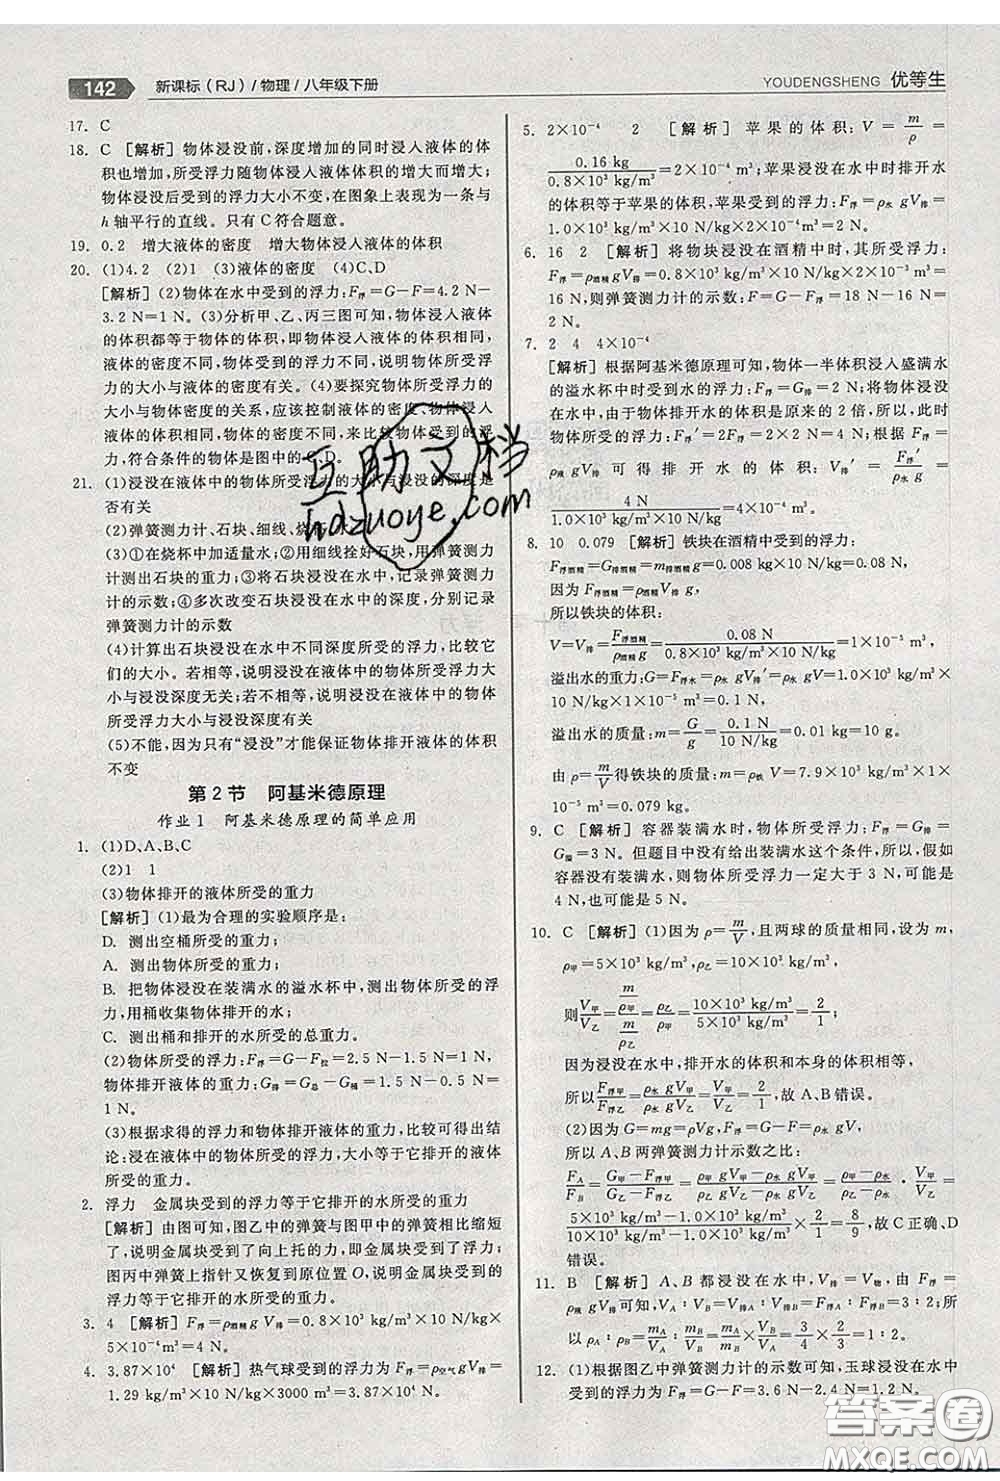 142 新课标(RJ)/物理/八年级下册
YOUDENGSHENG 优等生
17. C
18. C [解析]物体浸没前,深度增加的同时浸入液体的体
积也增加,所受浮力随物体浸入液体体积的增大而增大;
物体浸没后受到的浮力大小不变,在图象上表现为一条与
h 轴平行的直线。只有 C 符合题意。
19. 0.2 增大液体的密度 增大物体浸入液体的体积
20. (1)4.2 (2)1 (3)液体的密度 (4)C、D
[解析](2)物体在水中受到的浮力:F浮=G-F=4.2 N-
3.2 N=1 N。(3)分析甲、乙、丙三图可知,物体浸入液
体的体积都等于物体的体积,即物体浸入液体体积相同,
液体的密度不同,物体受到的浮力不同,说明物体所受浮
力的大小与液体的密度有关。(4)要探究物体所受浮力的
大小与物体密度的关系,应该控制液体的密度、物体浸入
液体的体积相同,物体的密度不同,来比较物体受到的浮
力,符合条件的物体是图中的 C、D。
21. (1)浸没在液体中的物体所受浮力的大小与浸没的深度是
否有关
(2)弹簧测力计、石块、细线、烧杯、
(3)①在烧杯中加适量水;②用细线拴好石块,用弹簧测力
计测出石块的重力;③将石块浸没在水中,记录弹簧测力
计的示数;④多次改变石块浸没在水中的深度,分别记录
弹簧测力计的示数
(4)计算出石块浸没在水中不同深度所受的浮力,进行比
较得出结论。若相等,说明浸没在液体中的物体所受浮力
大小与浸没深度无关;若不相等,说明浸没在液体中的物体
所受浮力大小与浸没深度有关
(5)不能,因为只有“浸没”才能保证物体排开液体的体积
不变
第 2 节 阿基米德原理
作业 1 阿基米德原理的简单应用
1. (1)D、A、B、C
(2)1 1
(3)物体排开的液体所受的重力
[解析](1)最为合理的实验顺序是:
D. 测出空桶所受的重力;
A. 测出物体所受的重力;
B. 把物体浸没在装满水的溢水杯中,测出物体所受的浮
力,用桶收集物体排开的水;
C. 测出桶和排开的水所受的总重力。
(2)物体所受的浮力:F浮=G-F拉=2.5 N-1.5 N=1 N,
物体排开液体的重力:G排=G总-G桶=1.5 N-0.5 N=
1 N。
(3)根据求得的浮力和物体排开水的重力,比较可得出结
论:浸在液体中的物体所受浮力的大小等于物体排开的液
体所受的重力。
2. 浮力 金属块受到的浮力等于它排开的水所受的重力
[解析]由图可知,图乙中的弹簧与图甲中的弹簧相比缩短
了,说明金属块受到了向上托的力,即受到水的浮力;
图丙中弹簧上指针又恢复到原位置 O,说明金属块受到的
浮力等于它排开的水所受的重力。
3. 4 [解析]F浮=ρ液gV排=0.8×10³ kg/m³×10 N/kg
×5×10⁻⁴ m³=4 N。
4. 3.87×10⁴ [解析]热气球受到的浮力为 F浮=ρ空气gV排=
1.29 kg/m³×10 N/kg×3000 m³=3.87×10⁴ N。
5. 2×10⁻⁴ 2 [解析]苹果的体积:V=m/ρ=
0.16 kg/0.8×10³ kg/m³=2×10⁻⁴ m³;苹果浸没在水中时排开水
的体积 V排=V=2×10⁻⁴ m³,受到的浮力:F浮=ρ水gV排=
1.0×10³ kg/m³×10 N/kg×2×10⁻⁴ m³=2 N。
6. 16 2 [解析]将物块浸没在酒精中时,其所受浮力:
F浮=ρ酒精gV排=0.8×10³ kg/m³×10 N/kg×2×10⁻³ m³=
16 N,则弹簧测力计的示数:F=G-F浮=18 N-16 N=
2 N。
7. 2 4 4×10⁻⁴
[解析]根据阿基米德原理可知,物体一半体积浸入盛满水
的溢水杯中时受到水的浮力:F浮=G排=2 N;将物体浸没
在水中,由于物体排开水的体积是原来的 2 倍,所以,此时
物体所受的浮力:F浮′=2F浮=2×2 N=4 N;根据 F浮=
ρ液gV排可得排开水的体积:V排′=F浮′/ρ水g=
4 N/1.0×10³ kg/m³×10 N/kg=4×10⁻⁴ m³。
8. 10 0.079 [解析]铁块在酒精中受到的浮力:
F浮酒精=G排酒精=m排酒精g=0.008 kg×10 N/kg=0.08 N,
由 F浮酒精=ρ酒精gV排
所以铁块的体积:
V=V排=F浮酒精/ρ酒精g=0.08 N/0.8×10³ kg/m³×10 N/kg=1×10⁻⁵ m³,
溢出水的重力:G=F浮水=ρ水gV排′=ρ水gV=1.0×10³
kg/m³×10 N/kg×1×10⁻⁵ m³=0.1 N,
溢出水的质量:m=G/g=0.1 N/10 N/kg=0.01 kg=10 g。
由 ρ=m/V得铁块的质量:m=ρ铁V=7.9×10³ kg/m³×1×
10⁻⁵ m³=0.079 kg。
9. C [解析]容器装满水时,物体受到的浮力:F浮=G排=
G溢=3 N。但题目中没有给出装满水这个条件,所以,假如
容器没有装满水,则物体受到的浮力一定大于 3 N,可能是
4 N。
10. C [解析](1)因为 ρ=m/V,且两球的质量相同,设为 m,
ρ甲=5×10³ kg/m³,ρ乙=10×10³ kg/m³,
则V甲/V乙=(m/ρ甲)/(m/ρ乙)=ρ乙/ρ甲=10×10³ kg/m³/5×10³ kg/m³=2/1;
因为浸没在水中,排开水的体积和本身的体积相等,
所以F浮甲/F浮乙=ρ水gV甲/ρ水gV乙=V甲/V乙=2/1,故 A、B 错误。
(2)因为 G=mg=ρVg,F浮=G-F=ρ水gV排,
所以 A、B 两弹簧测力计示数之比:
F甲/F乙=G甲-F浮甲/G乙-F浮乙=ρ甲gV甲-ρ水gV甲/ρ乙gV乙-ρ水gV乙=ρ甲-ρ水/ρ乙-ρ水·V甲/V乙=
5×10³ kg/m³-1.0×10³ kg/m³/10×10³ kg/m³-1.0×10³ kg/m³×2/1=8/9,故 C 正确、D
错误。
11. B [解析]A、B 都浸没在水中,V排=V物,由 F浮=
ρ液gV排可知,VA∶VB=V排A∶V排B=F浮A∶F浮B=4∶3。所
以 ρA∶ρB=mA/VA∶mB/VB=mA/mB×VB/VA=2/1×3/4=3/2=3∶2。
12. (1)根据图乙中弹簧测力计的示数可知,玉球浸没在水中
受到的浮力 F浮=G-F=3.6 N-2.4 N=1.2 N。
互助文档
hdzuoye.com
答案圈
MXQE.COM